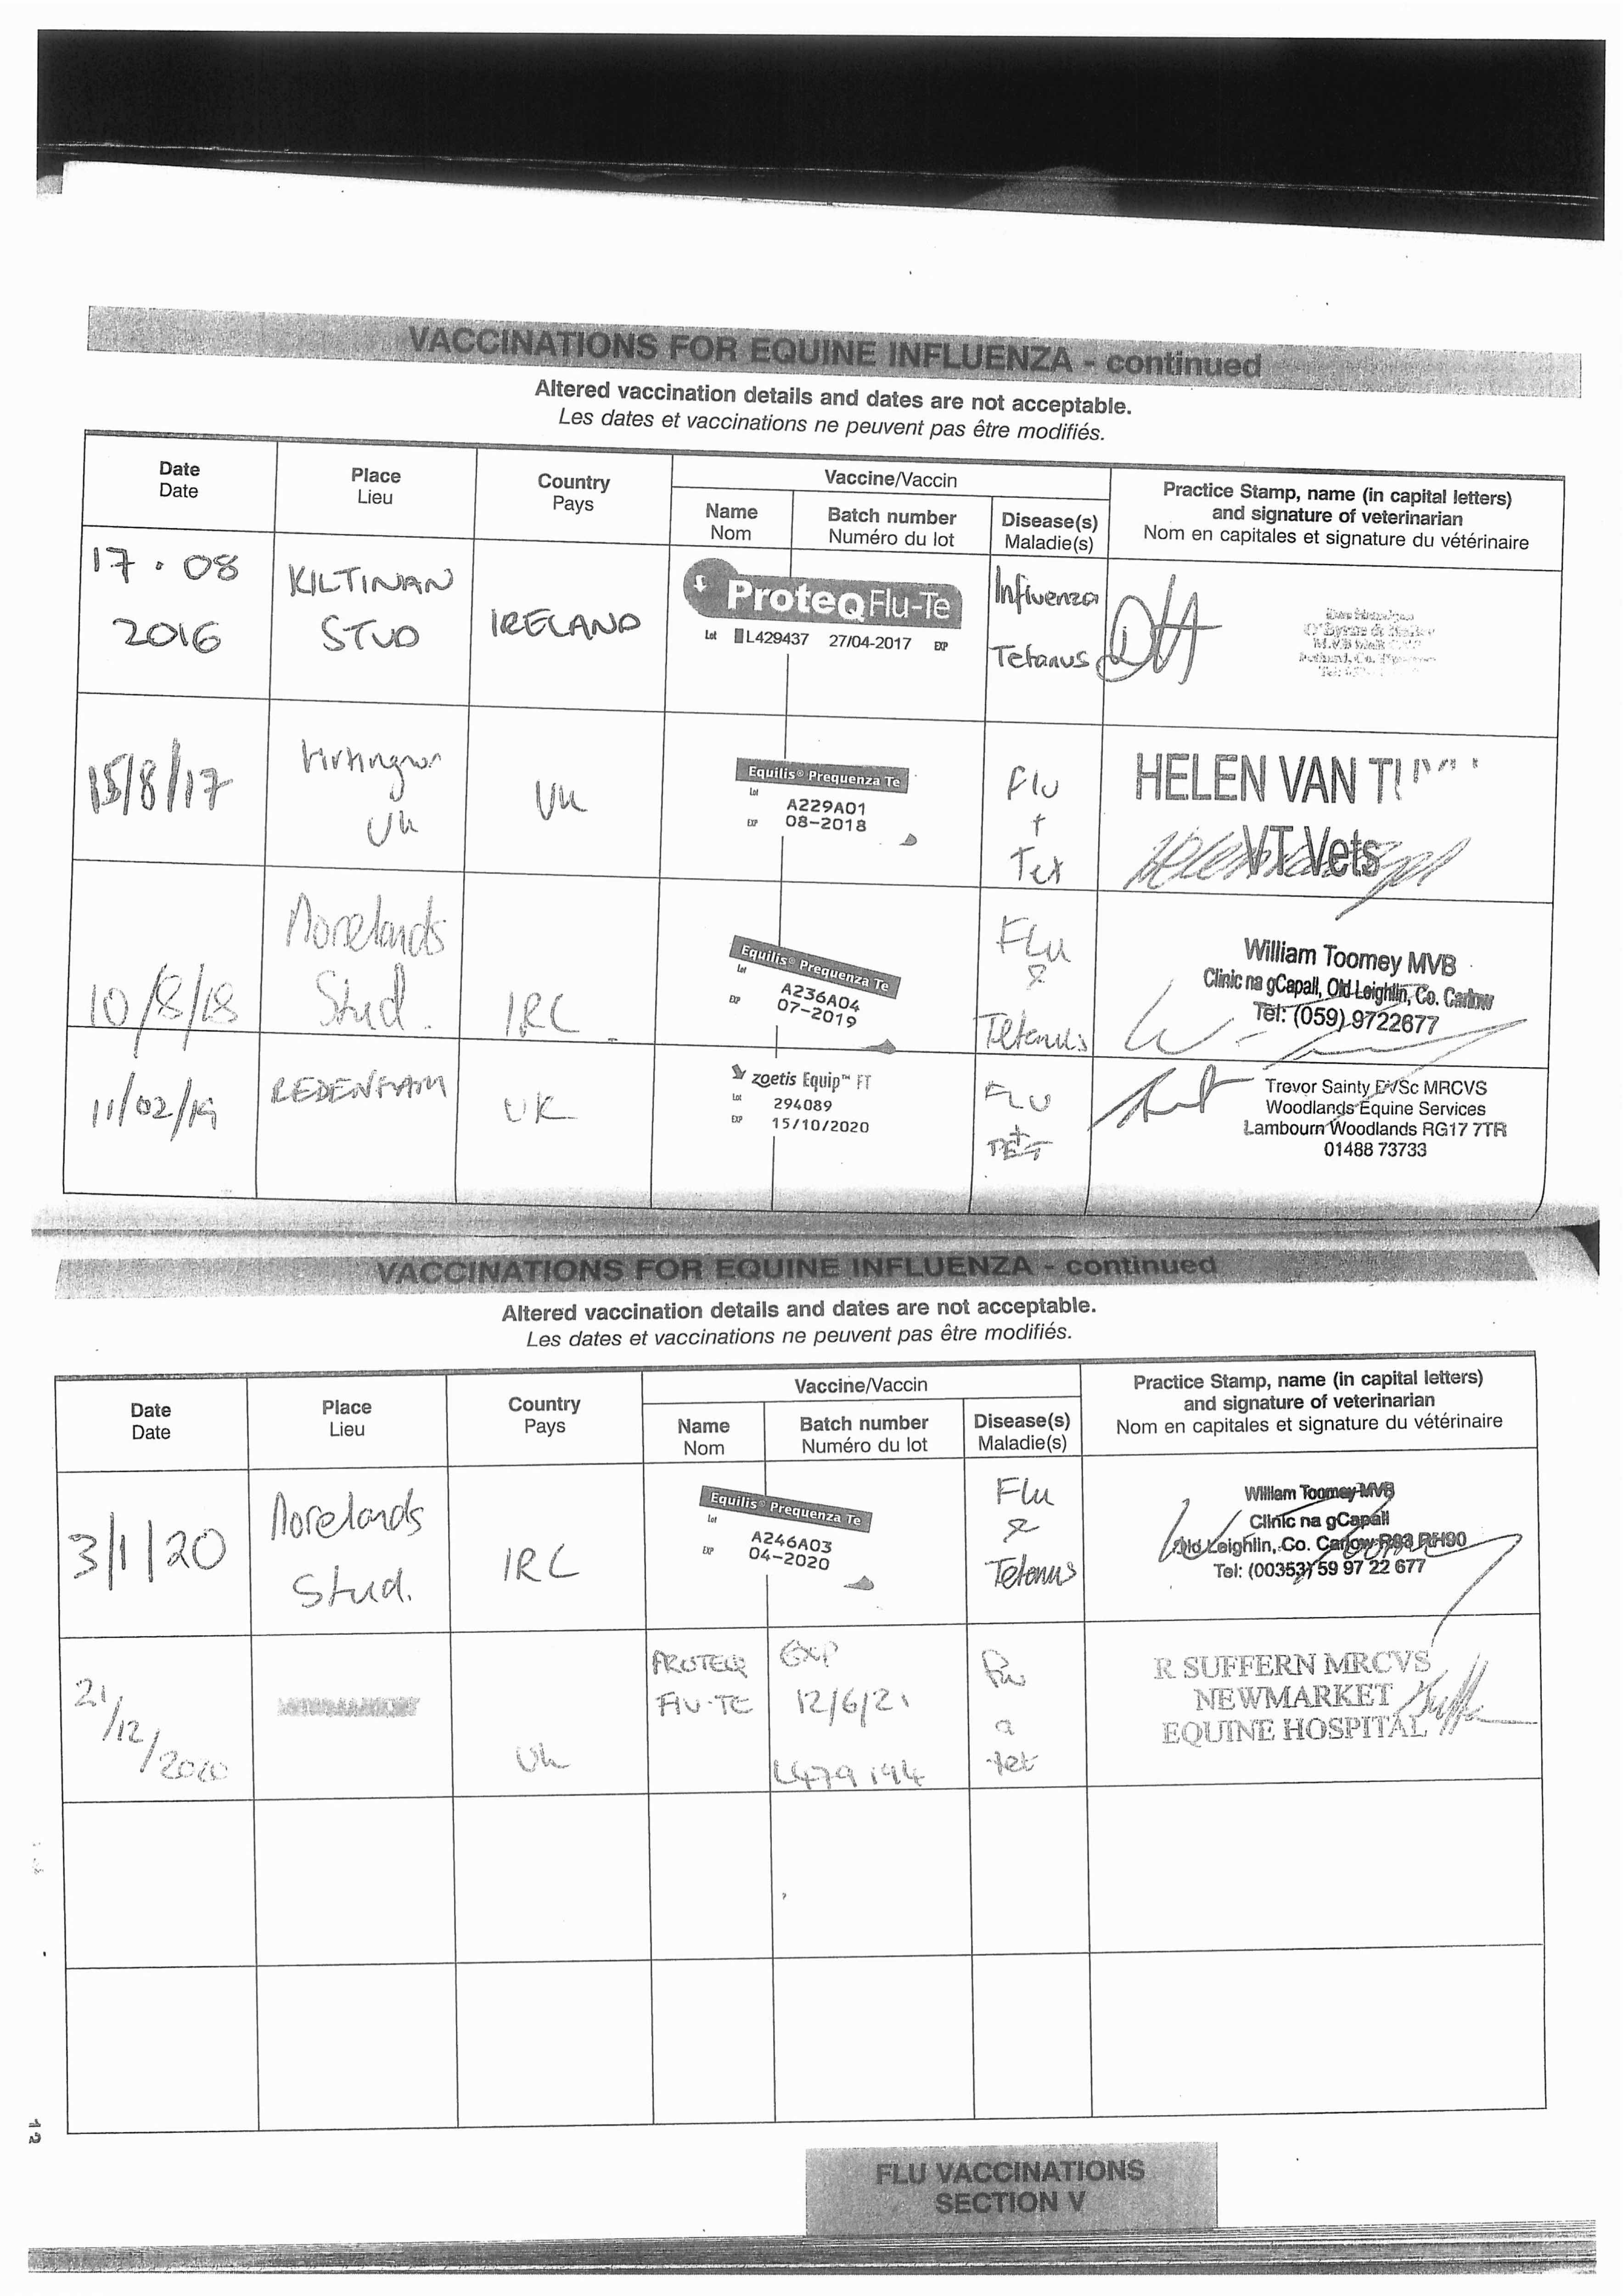 VACCINATIONS FOR EQUINE INFLUENZA - continued
Altered vaccination details and dates are not acceptable.
Les dates et vaccinations ne peuvent pas être modifiés.
Date
Date
Place
Lieu
Country
Pays
Vaccine/Vaccin
Name
Nom
Batch number
Numéro du lot
Disease(s)
Maladie(s)
Practice Stamp, name (in capital letters)
and signature of veterinarian
Nom en capitales et signature du vétérinaire
17.08
2016
KILTINAN
STUD
IRELAND
ProteqFlu-Te
Lot L429437 27/04-2017 EXP
Influenza
Tetanus
15/8/17
UK
UK
Equilis® Prequenza Te
Lot
A229A01
EXP 08-2018
Flu
+
Tet
HELEN VAN
VT Vets
10/8/18
Norelands
Stud.
IRE
Equilis® Prequenza Te
Lot
A236A04
EXP 07-2019
FLU
&
Tetanus
William Toomey MVB
Clinic na gCapall, Old Leighlin, Co. Carlow
Tel: (059) 9722677
11/02/19
REDENHAM
UK
zoetis Equip™ FT
Lot 294089
EXP 15/10/2020
FLU
+
TET
Trevor Sainty BVSc MRCVS
Woodlands Equine Services
Lambourn Woodlands RG17 7TR
01488 73733
VACCINATIONS FOR EQUINE INFLUENZA - continued
Altered vaccination details and dates are not acceptable.
Les dates et vaccinations ne peuvent pas être modifiés.
Date
Date
Place
Lieu
Country
Pays
Vaccine/Vaccin
Name
Nom
Batch number
Numéro du lot
Disease(s)
Maladie(s)
Practice Stamp, name (in capital letters)
and signature of veterinarian
Nom en capitales et signature du vétérinaire
3/1/20
Norelands
Stud.
IRE
Equilis® Prequenza Te
Lot
A246A03
EXP 04-2020
Flu
&
Tetanus
William Toomey MVB
Clinic na gCapall
Old Leighlin, Co. Carlow R93 RH90
Tel: (00353) 59 97 22 677
21/
/12/
/2020
UK
PROTEQ
FLU-TE
EXP
12/6/21
L479194
Flu
&
tet
R SUFFERN MRCVS
NEWMARKET
EQUINE HOSPITAL
12
FLU VACCINATIONS
SECTION V